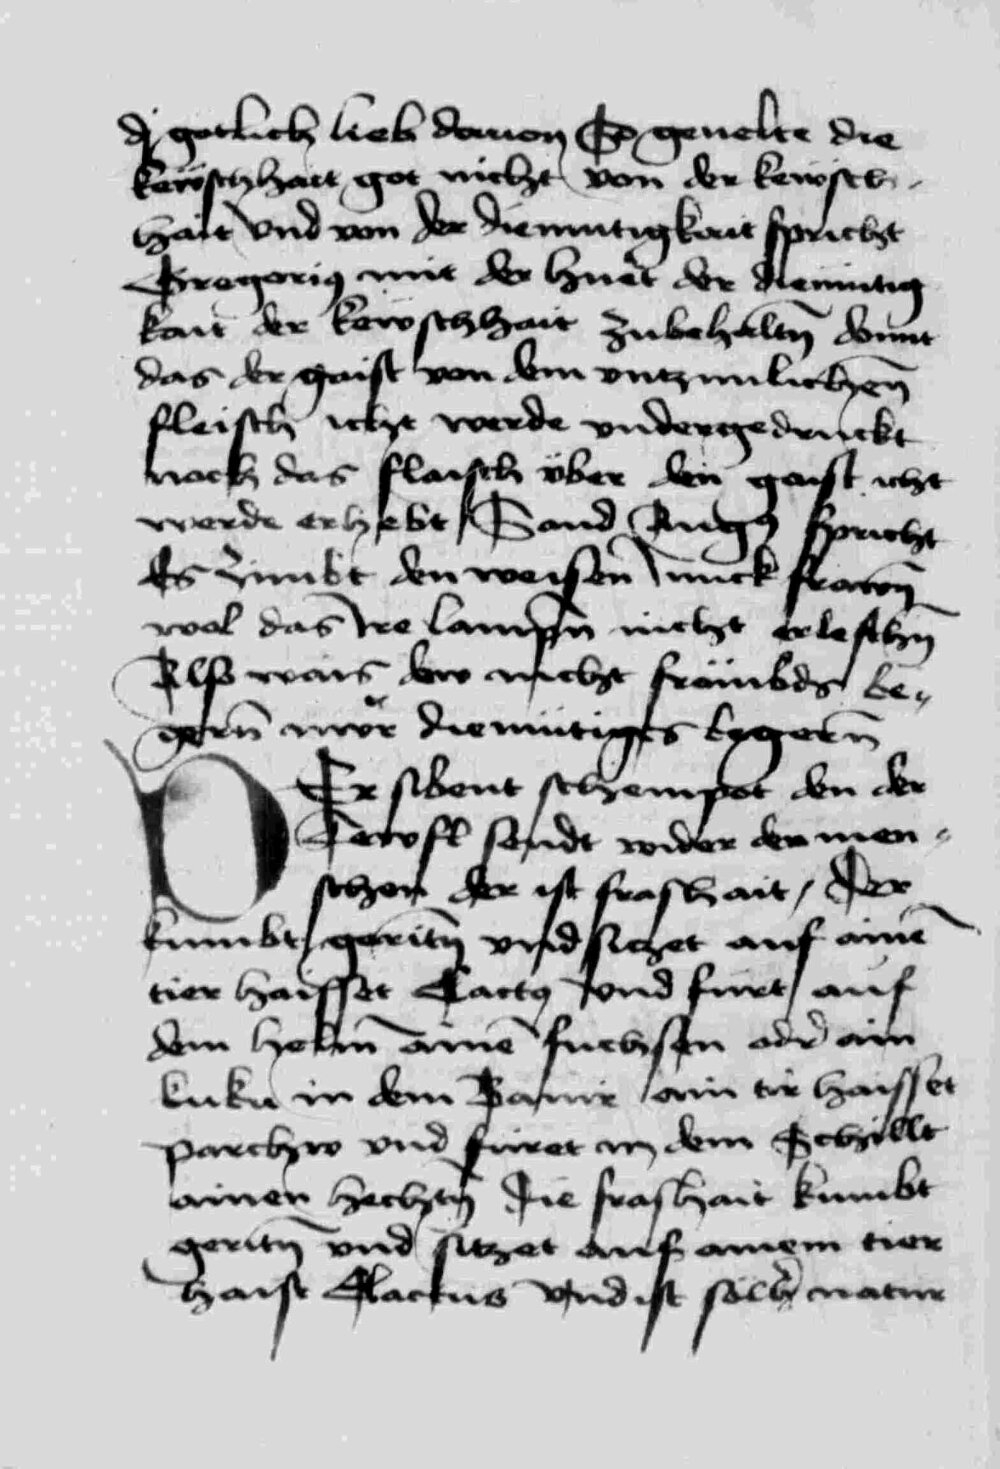 dj gotlich lieb dauon So geuelte die
kewschhait got nicht von der kewsch-
hait Vnd von der diemutigkait spricht
Gregorius mit der huet der diemutig
kait der kewschhait zubehaltn̄ domit
das der gaist von dem vntzimlichen̄
fleisch icht werde vndergedruckt
noch das flaisch über den gaist icht
werde erhebt / Sand Aug9 spricht
Es Zimbt den weisen Junckfrawn̄
wol das Ire lampn̄ nicht erleschn̄
Also wais dew nicht frömbds be-
gern̄ nwr diemütiges begern̄
DEr sibent schempot den der
Tewfl sendt wider den men-
schen der ist frashait / Der
kumbt geritn̄ vnd siczet auf ainē
tier haisset Cactus Vnd furt auf
dem helm̄ ainē fuchsen odr ain
kuku in dem Banir ain tir haisset
parchw vnd füret in dem Schillt
ainen hechtn̄ Die frashait kumbt
geritn̄ vnd sitzet auf ainem tier
haist Clactus Vnd ist sölhr natur